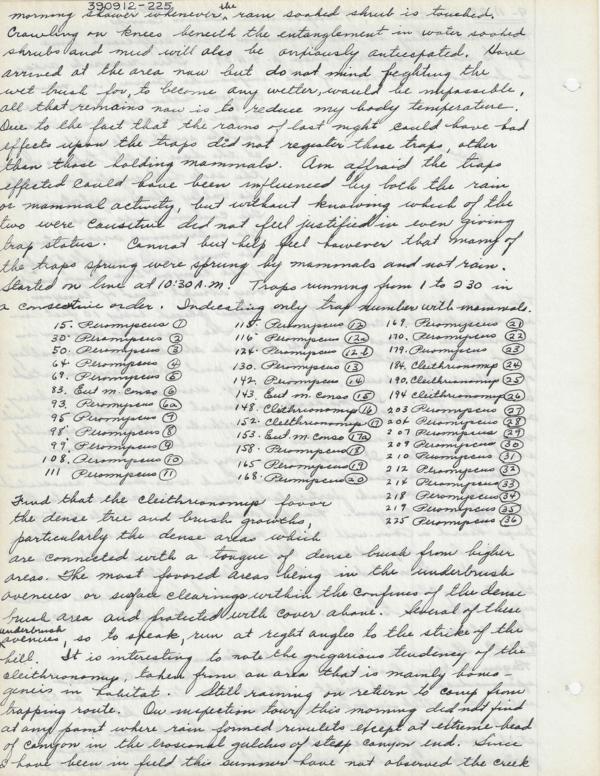 390912-225
morning shower whenever the rain soaked shrub is touched.
Crawling on knees beneath the entanglement in water soaked
shrubs and mud will also be anxiously anticipated. Have
arrived at the area now but do not mind fighting the
wet brush for, to become any wetter, would be impossible,
all that remains now is to reduce my body temperature.
Due to the fact that the rains of last night could have had
effects upon the traps did not register those traps, other
than those holding mammals. Am affraid the traps
effected could have been influenced by both the rain
or mammal activity, but without knowing which of the
two were causitive did not feel justified in even giving
trap status. Cannot but help feel however that many of
the traps sprung were sprung by mammals and not rain.
Started on line at 10:30 A.M. Traps running from 1 to 230 in
a consective order. Indicating only trap number with mammals.
15. Peromyscus 1 115. Peromyscus 12 169. Peromyscus 21
30. Peromyscus 2 116. Peromyscus 12a 170. Peromyscus 22
50. Peromyscus 3 124. Peromyscus 12b 179. Peromyscus 23
64. Peromyscus 4 130. Peromyscus 13 184. Cleithrionomys 24
69. Peromyscus 5 142. Peromyscus 14 190. Cleithrionomys 25
83. Eut. m. conso 6 143. Eut m. conso 15 194 Cleithrionomys 26
93. Peromyscus 6a 148. Cleithrionomys 16 203 Peromyscus 27
95 Peromyscus 7 152. Cleithrionomys 17 206 Peromyscus 28
98. Peromyscus 8 153. Eut. m. conso 17a 207 Peromyscus 29
99. Peromyscus 9 158. Peromyscus 18 209 Peromyscus 30
108. Peromyscus 10 165 Peromyscus 19 210 Peromyscus 31
111 Peromyscus 11 168. Peromyscus 20 212 Peromyscus 32
214 Peromyscus 33
218 Peromyscus 34
219 Peromyscus 35
225 Peromyscus 36
Find that the cleithrionomys favor
the dense tree and brush growths,
particularly the dense areas which
are connected with a tongue of dense brush from higher
areas. The most favored areas being in the underbrush
avenues or surface clearings within the confines of the dense
brush area and protected with cover above. Several of these
underbrush avenues, so to speak, run at right angles to the strike of the
hill. It is interesting to note the gregarious tendency of the
cleithrionomys, taken from an area that is mainly homo-
geneis in habitat. Still raining on return to camp from
trapping route. On inspection tour this morning did not find
at any point where rain formed rivulets except at extreme head
of canyon in the erosional gulches of steep canyon end. Since
I have been in field this summer have not observed the creek